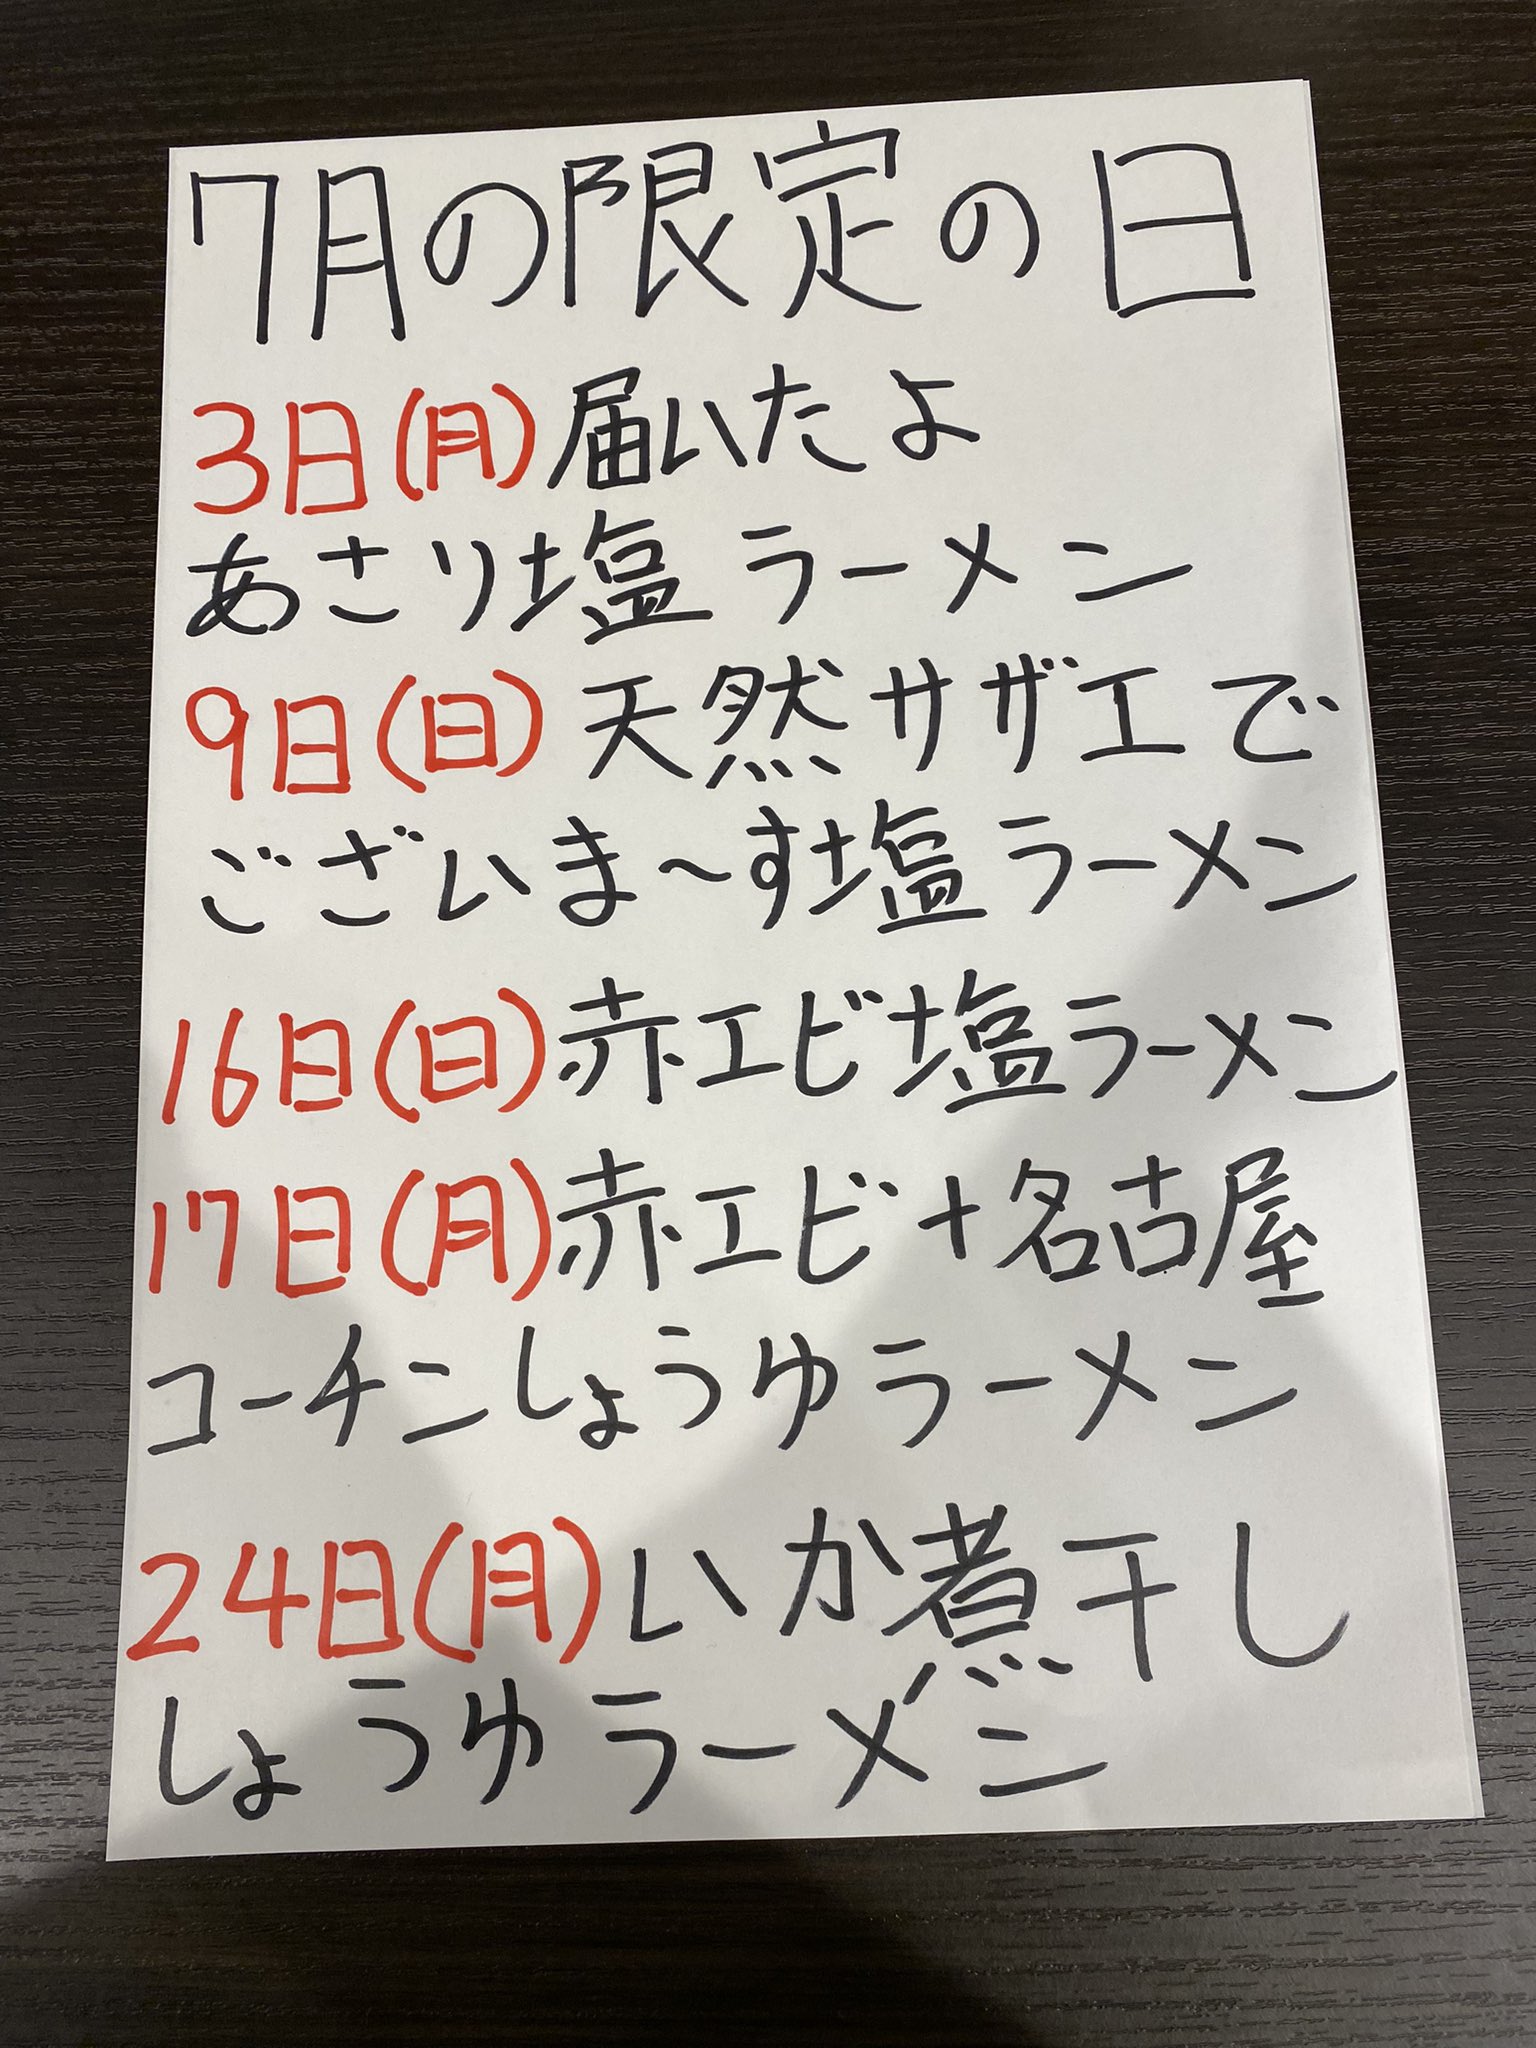 7月の限定の日
3日(月)届いたよ
あさり塩ラーメン
9日(日)天然サザエで
ございま〜す塩ラーメン
16日(日)赤エビ塩ラーメン
17日(月)赤エビ+名古屋
コーチンしょうゆラーメン
24日(月)いか煮干し
しょうゆラーメン